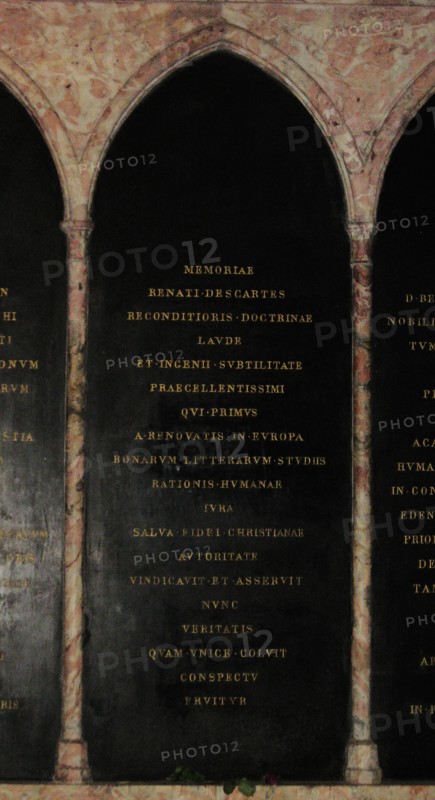 MEMORIAE
RENATI·DESCARTES
RECONDITIORIS·DOCTRINAE
LAVDE
ET·INGENII·SVBTILITATE
PRAECELLENTISSIMI
QVI·PRIMVS
A·RENOVATIS·IN·EVROPA
BONARVM·LITTERARVM·STVDIIS
RATIONIS·HVMANAE
IVRA
SALVA·FIDEI·CHRISTIANAE
AVTORITATE
VINDICAVIT·ET·ASSERVIT
NVNC
VERITATIS
QVAM·VNICE·COLVIT
CONSPECTV
FRVITVR
N
HI
TI
ONVM
RVM
STIA
D·BE
NOBILI
TVM
PR
ACA
HVMA
IN·CON
EDEN
PRIO
DE
TAN
AB
IN·P
PHOTO12
PHOTO12
PHOTO12
PHOTO12
PHOTO12
PHOTO12
PHOTO12
PHOTO12